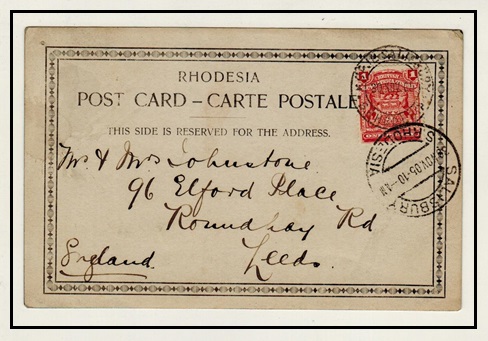 RHODESIA
POST CARD – CARTE POSTALE
THIS SIDE IS RESERVED FOR THE ADDRESS.
Mr & Mrs Johnstone
96 Elford Place
Roundhay Rd
Leeds.
England.
1 1
SALISBURY
NOV 05
S. RHODESIA